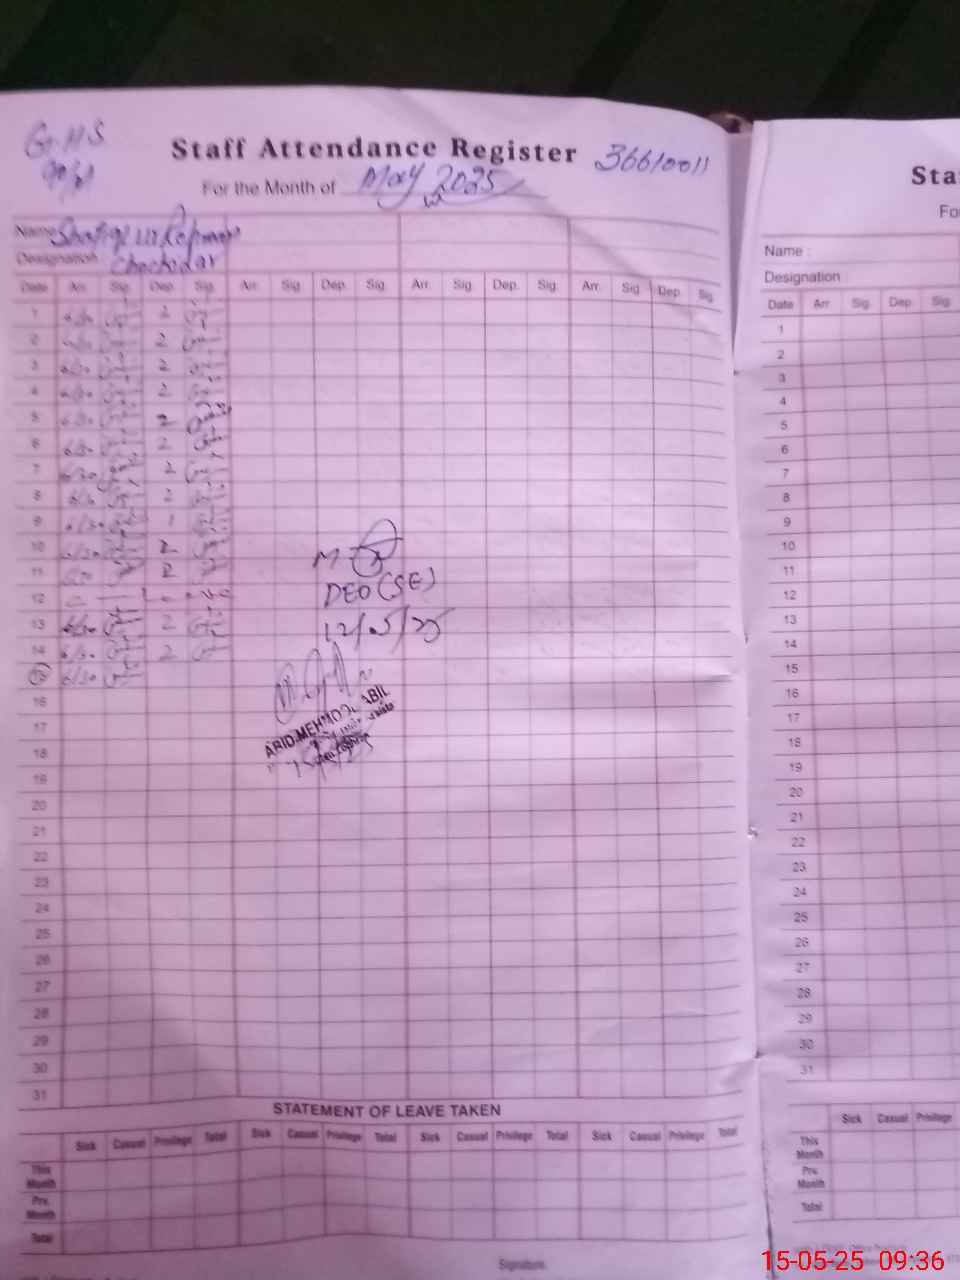 G.H.S
Staff Attendance Register 36610011
For the Month of May 2025
Name Shafiq ur Rehman
Designation Chockidar
Date Arr. Sig. Dep. Sig. Arr. Sig. Dep. Sig. Arr. Sig. Dep. Sig. Arr. Sig. Dep. Sig.
1 2
2 2
3 6/30 2
4 6/30 2
5 6/30 2
6 6/30 2
7 6/30 2
8 6/30 2
9 6/30 1
10 6/30 2
11 2
12
13 6/30 2
14 6/30 2
15 6/30
DEO (SE)
12/5/25
16
17
18
19
20
21
22
23
24
25
26
27
28
29
30
31
STATEMENT OF LEAVE TAKEN
Sick Casual Privilege Total Sick Casual Privilege Total Sick Casual Privilege Total Sick Casual Privilege Total
This Month
Prv. Month
Total
Signature.
Sta
Fo
Name :
Designation
Date Arr Sig. Dep. Sig.
1
2
3
4
5
6
7
8
9
10
11
12
13
14
15
16
17
18
19
20
21
22
23
24
25
26
27
28
29
30
31
Sick Casual Privilege
This Month
Prv. Month
Total
15-05-25 09:36